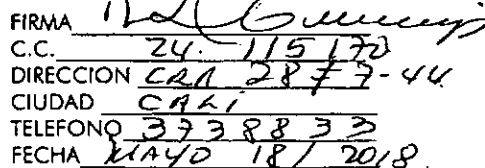 FIRMA
C.C. 24.115170
DIRECCION CRA 28 # 77-44
CIUDAD CALI
TELEFONO 3738833
FECHA MAYO 18/2018